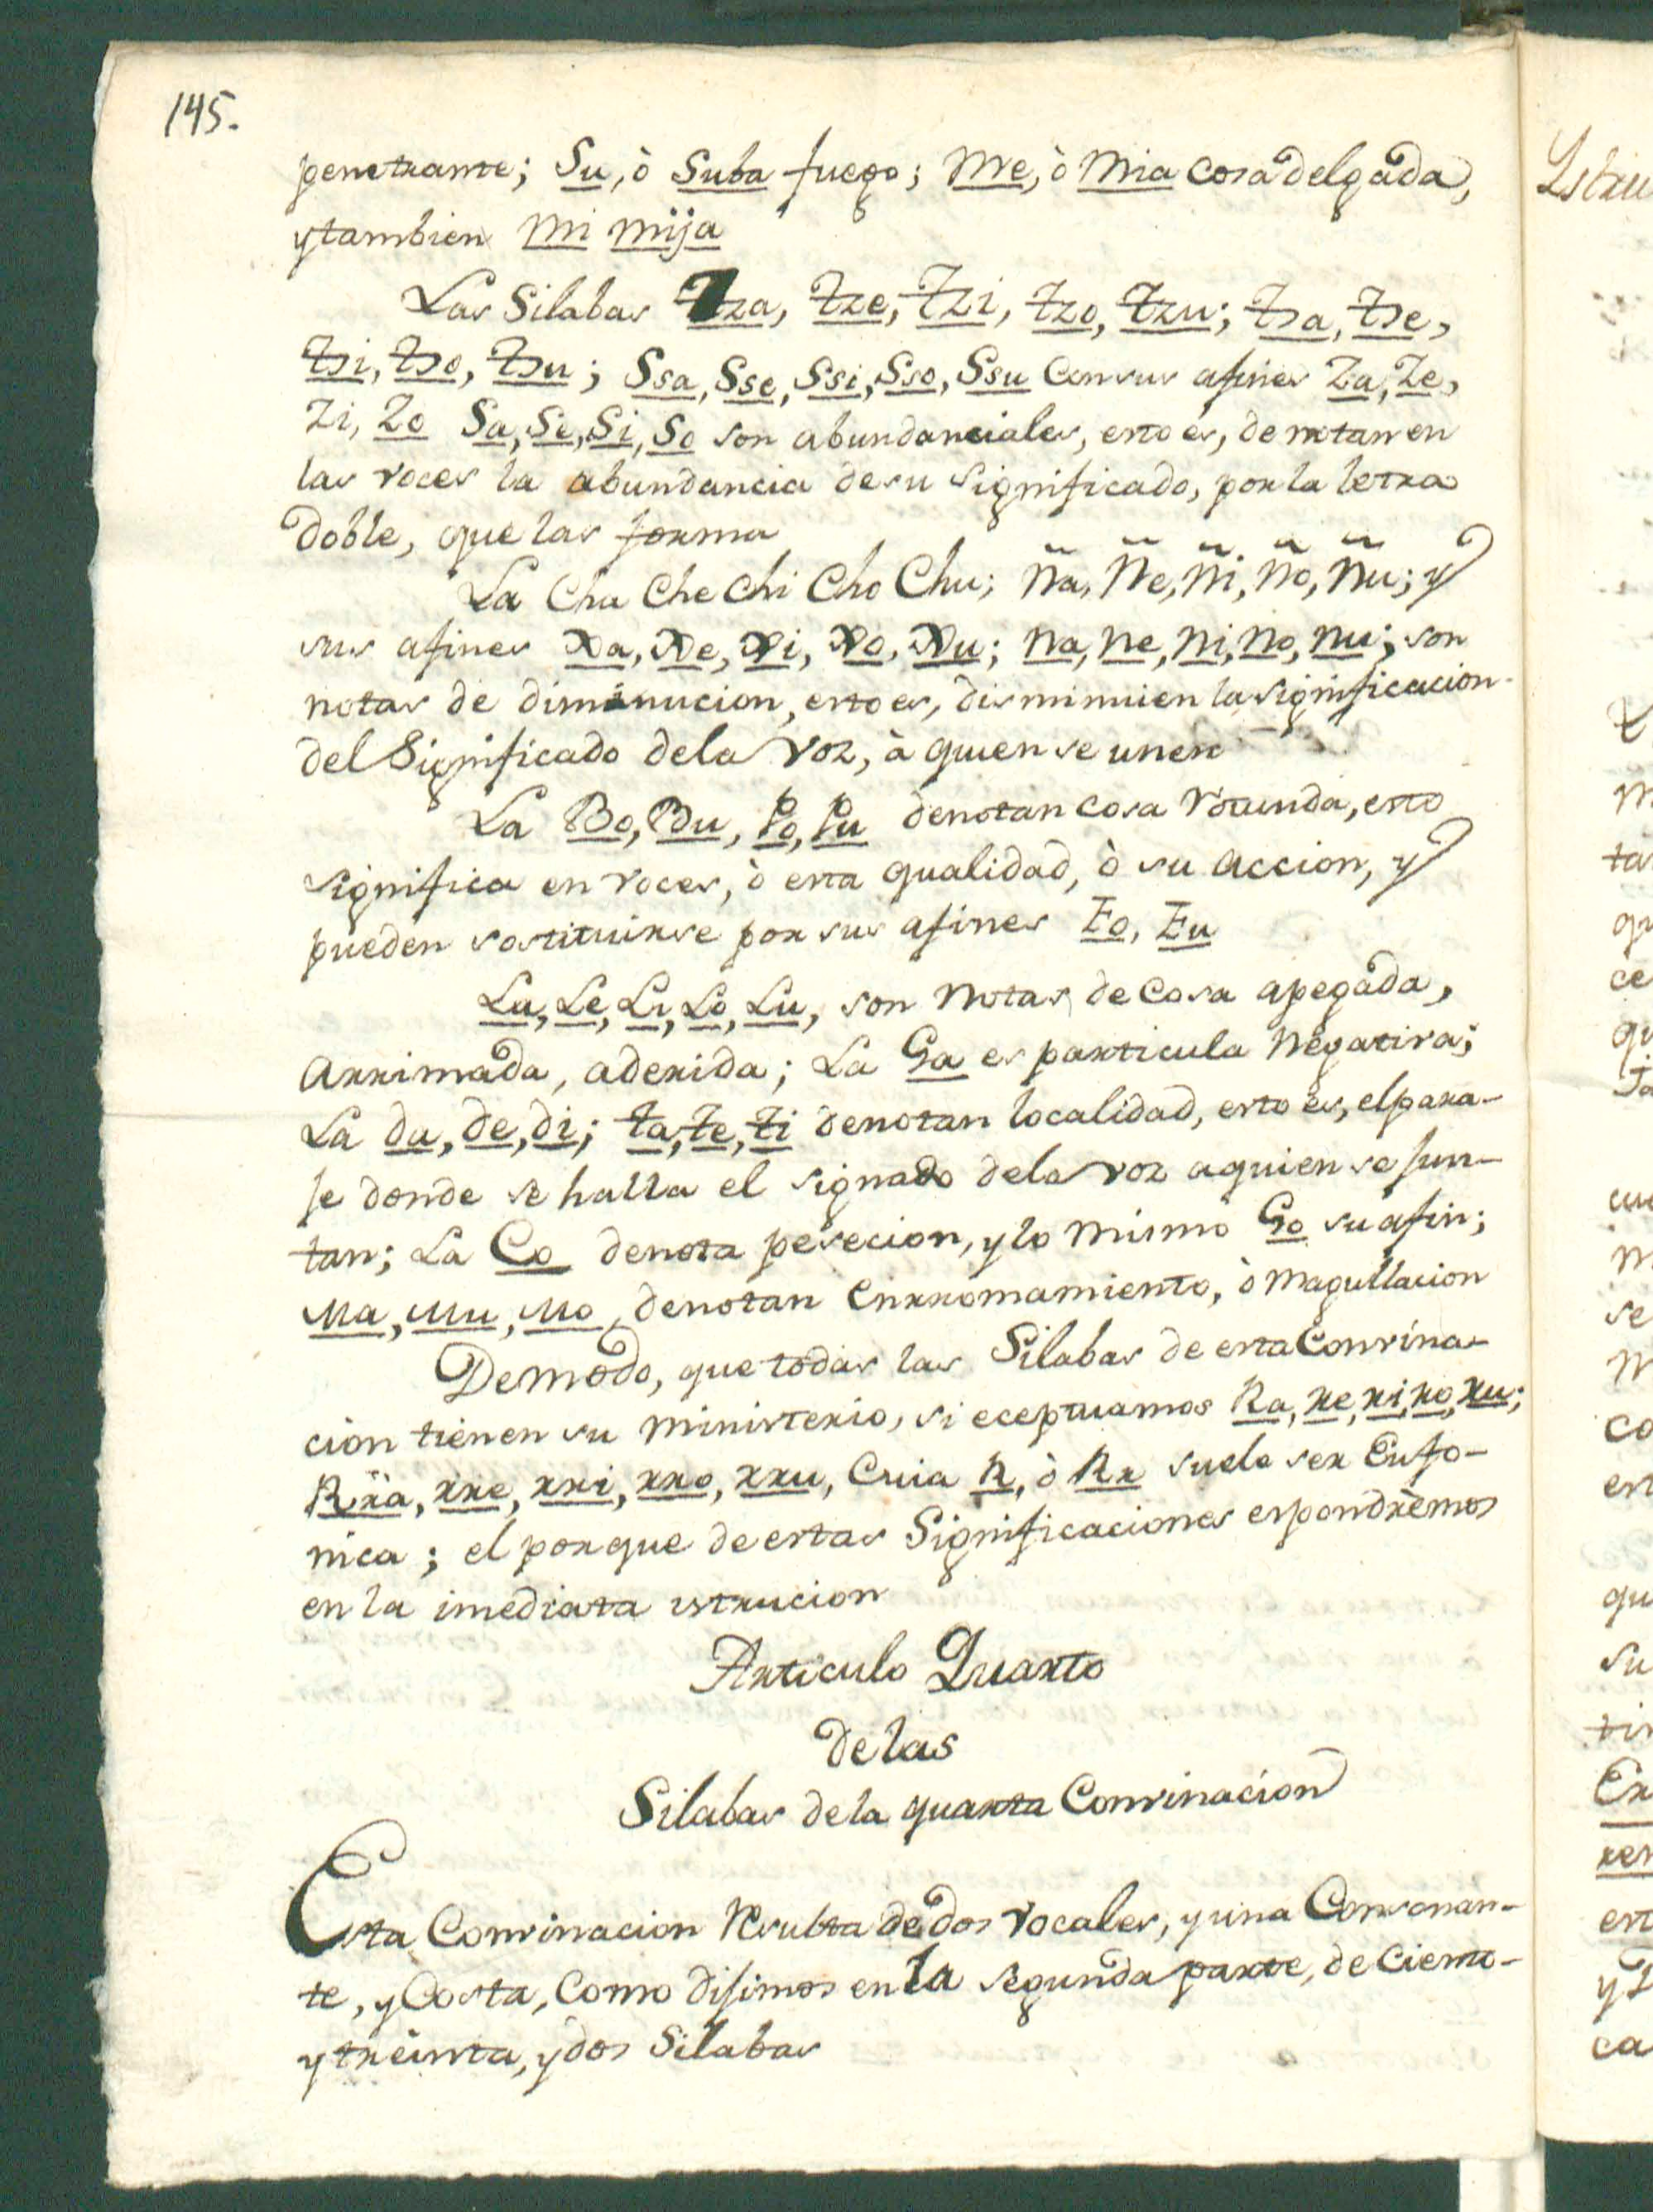 145.
penetrante; Su, ò Suba fuego; Me, ò Mia cosa delgada,
y tambien Mi Mija
Las Silabas Tza, tze, Tzi, tzo, tzu; tsa, tse,
tsi, tso, tsu; Ssa, Sse, Ssi, Sso, Ssu Con sus afines Za, Ze,
Zi, Zo Sa, Se, Si, So son abundanciales, esto es, denotan en
las voces la abundancia de su significado, por la letra
doble, que las forma
La Cha Che Chi Cho Chu; Ña, Ñe, Ñi, Ño, Ñu; y
sus afines Xa, Xe, Xi, Xo, Xu; Na, Ne, Ni, No, Nu; son
notas de diminucion, esto es, disminuien la significacion
del Significado dela Voz, à quien se unen
La Bo, Bu, Po, Pu denotan cosa rotunda, esto
significa en voces, ò esta qualidad, ò su accion, y
pueden sostituirse por sus afines Fo, Fu
La, Le, Li, Lo, Lu, son Notas de Cosa apegada,
Arrimada, aderida; La Ga es particula Negativa;
La da, de, di; ta, te, ti denotan localidad, esto es, el para-
je donde se halla el signado dela voz a quien se jun-
tan; La Co denota pesecion, y lo mismo Go su afin;
Ma, Mu, Mo, denotan Enrromamiento, ò Magullacion
De modo, que todas las Silabas de esta Convina-
cion tienen su Ministerio, si eceptuamos Ra, re, ri, ro, ru;
Rra, rre, rri, rro, rru, Cuia R, ò Rr suele ser Eufo-
nica; el porque de estas Significaciones espondrèmos
en la imediata istrucion
Articulo Quarto
de las
Silabas de la quarta Convinacion
Esta Convinacion Resulta de dos Vocales, y una Consonan-
te, y Costa, Como dijimos en la segunda parte, de Ciento-
y treinta, y dos Silabas
Istru